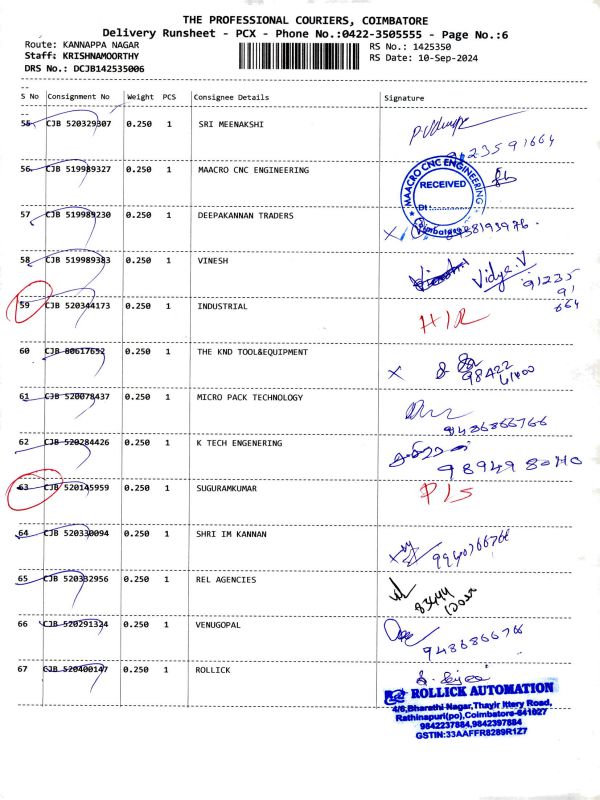 THE PROFESSIONAL COURIERS, COIMBATORE
Delivery Runsheet - PCX - Phone No.:0422-3505555 - Page No.:6
Route: KANNAPPA NAGAR
RS No.: 1425350
Staff: KRISHNAMOORTHY
RS Date: 10-Sep-2024
DRS No.: DCJB142535006
S No Consignment No Weight PCS Consignee Details Signature
55 CJB 520329307 0.250 1 SRI MEENAKSHI
9123591664
56 CJB 519989327 0.250 1 MAACRO CNC ENGINEERING
MAACRO CNC ENGINEERING
RECEIVED
Dt:
Coimbatore
57 CJB 519989230 0.250 1 DEEPAKANNAN TRADERS
58 CJB 519989383 0.250 1 VINESH
Vidya.V
91235
91
664
59 CJB 520344173 0.250 1 INDUSTRIAL
60 CJB 80617652 0.250 1 THE KND TOOL&EQUIPMENT
98422
61400
61 CJB 520078437 0.250 1 MICRO PACK TECHNOLOGY
9486866766
62 CJB 520284426 0.250 1 K TECH ENGENERING
63 CJB 520145959 0.250 1 SUGURAMKUMAR
64 CJB 520330094 0.250 1 SHRI IM KANNAN
9940766766
65 CJB 520332956 0.250 1 REL AGENCIES
66 CJB 520291324 0.250 1 VENUGOPAL
9486866766
67 CJB 520400147 0.250 1 ROLLICK
ROLLICK AUTOMATION
4/6,Bharathi Nagar,Thayir Ittery Road,
Rathinapuri(po),Coimbatore-641027
9842237884,9842397884
GSTIN:33AAFFR8289R1Z7